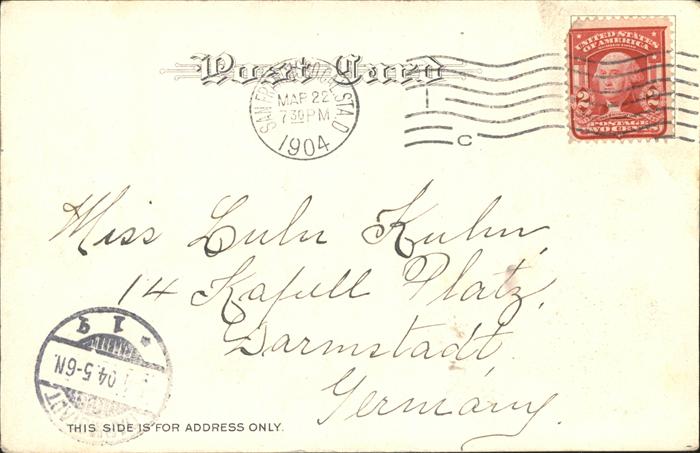 Post Card
SAN FRANCISCO CAL. STA. D
MAR 22
7 30 PM
1904
C
UNITED STATES
OF AMERICA
2 2
POSTAGE
TWO CENTS
Miss Lulu Kuhn,
14 Kapell Platz,
Darmstadt
Germany.
* 1 q
04.5-6N.
THIS SIDE IS FOR ADDRESS ONLY.